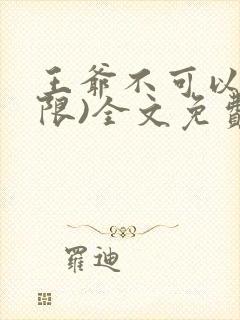 王爺不可以
限)全文免費
羅迪